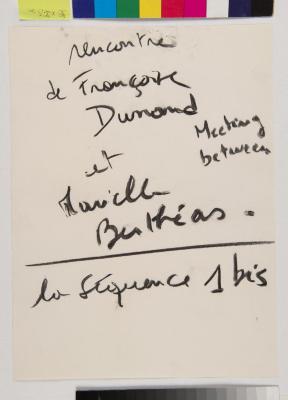 rencontre
de Françoise
Durand
Meeting
between
et
Marielle
Berthéas.
la séquence 1 bis